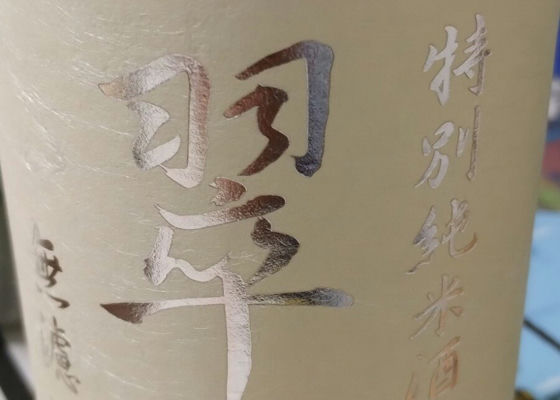 特別純米酒
翠
無濾